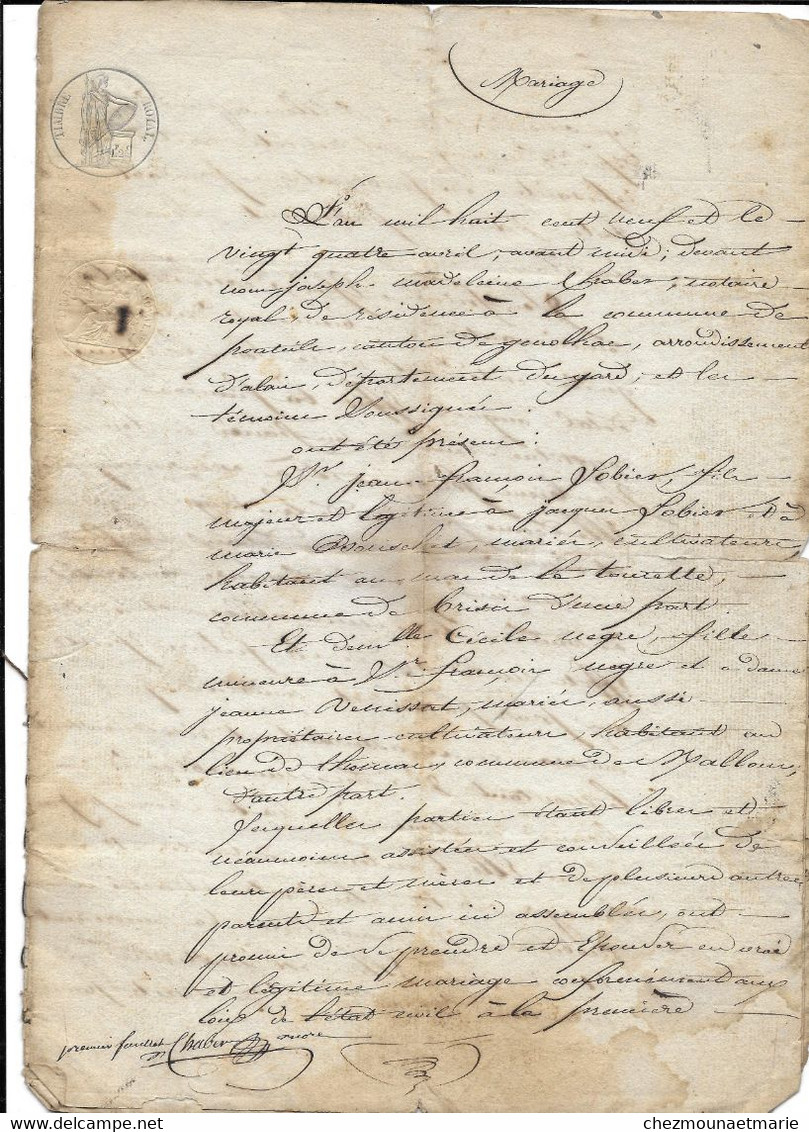 Mariage
TIMBRE ROYAL
L'an mil huit cent neuf et le
vingt quatre avril, avant midi; devant
nous joseph madeleine Chaber, notaire
royal, de résidence à la commune de
ponteils, canton de genolhac, arrondissement
d'alais, département du gard, et les
témoins Soussignés.
ont été présens:
Sr. jean françois fils
majeur et légitime à jacques & à
marie mariés, cultivateurs,
habitant au mas de la tourette,
commune de d'une part.
Et demlle Cécile negre, fille
mineure à Sr. françois negre et a dame
jeanne mariés, aussi
propriétaires cultivateurs, habitant au
lieu de thomas, commune de Mallons,
d'autre part.
Lesquelles parties étant libres et
néanmoins assistées et conseillées de
leurs pères et mères et de plusieurs autres
parents et amis ici assemblés, ont
promis de se prendre et Epouser en vrai
et légitime mariage conformément aux
loix de l'état civil à la première
premier Chaber
chezmounaetmarie